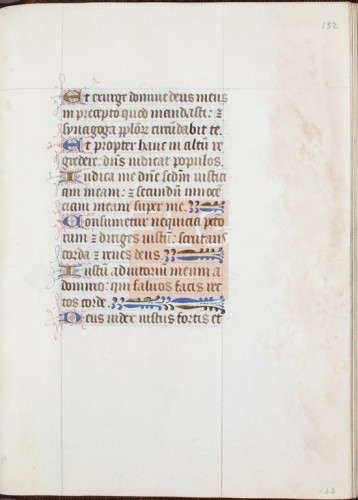 132
Et exurge domine deus meus
in precepto quod mandasti: ⁊
synagoga pplõꝝ circũdabit te.
Et propter hanc in altũ re
gredere: dñs iudicat populos.
Iudica me dñe scdm iustici
am meam: ⁊ secundũ innocẽ
ciam meam super me.
Consumetur nequicia pecto
rum ⁊ diriges iustũ: scrutans
corda ⁊ renes deus.
Iustũ adiutoriũ meum a
domino: qui saluos facit rec
tos corde.
Deus iudex iustus fortis et
132